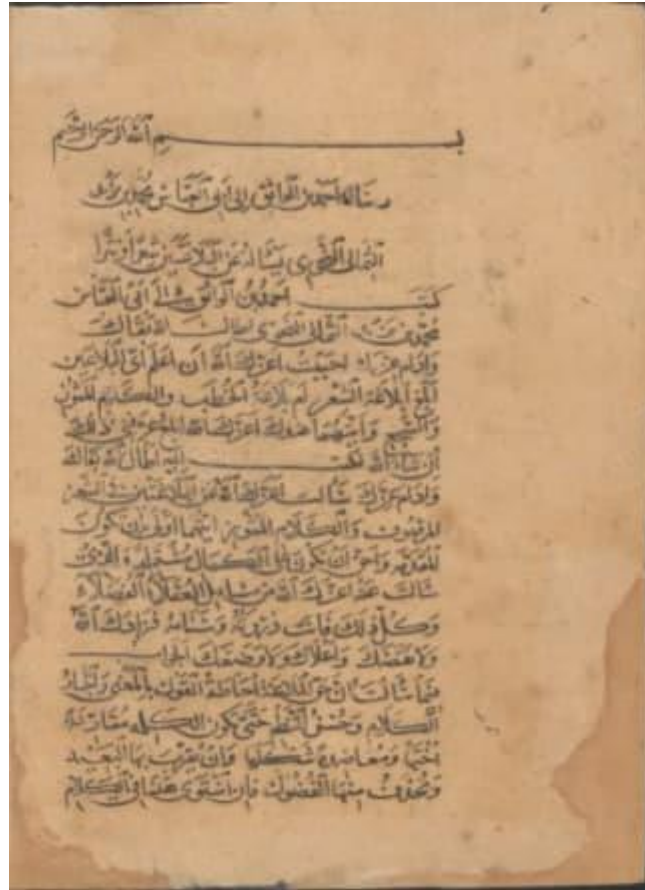 بسم الله الرحمن الرحيم
رسالة احمد بن الواثق إلى أبي العباس محمد بن يزيد
الثمالي النحوي يسأله عن البلاغتين شعرا ونثرا
كتب احمد بن الواثق إلى أبي العباس
محمد بن يزيد الثمالي النحوي اطال الله بقاك
وادام عزك احببت اعزك الله ان اعلم أي البلاغتين
ابلغ أبلاغة الشعر أم بلاغة الخطب والكلام المنثور
والسجع وأيتهما عندك اعزك الله ابلغ عرفني ذلك
إن شاء الله فكتب إليه اطال الله بقاك
وادام عزك سألت اعزك الله عن البلاغتين في الشعر
المرصوف والكلام المنثور أيهما اولى بان تكون
المقدمة واحق ان تكون على الكمال مشتملة والذي
سألت عنه اعزك الله من شاء على الفضلاء
وكل ذلك فانت ذروته وسنامه فزادك الله
ولا نقصك واعلاك ولا وضعك الجواب
فيما سألت ان حق البلاغة احاطة القول بالمعنى واختيار
الكلام وحسن النظم حتى تكون الكلمة مقاربة
اختها ومعاضدة شكلها وان يقرب بها البعيد
ويحذف منها الفضول فان استوى هذا في الكلام